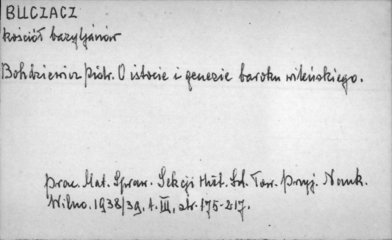 BUCZACZ
kościół bazyljanów
Bohdziewicz Piotr. O istocie i genezie baroku wileńskiego.
Prac. Mat. Spraw. Sekcji Hist. Szt. Tow. Przyj. Nauk.
Wilno. 1938/39, t. III, str. 175-217.